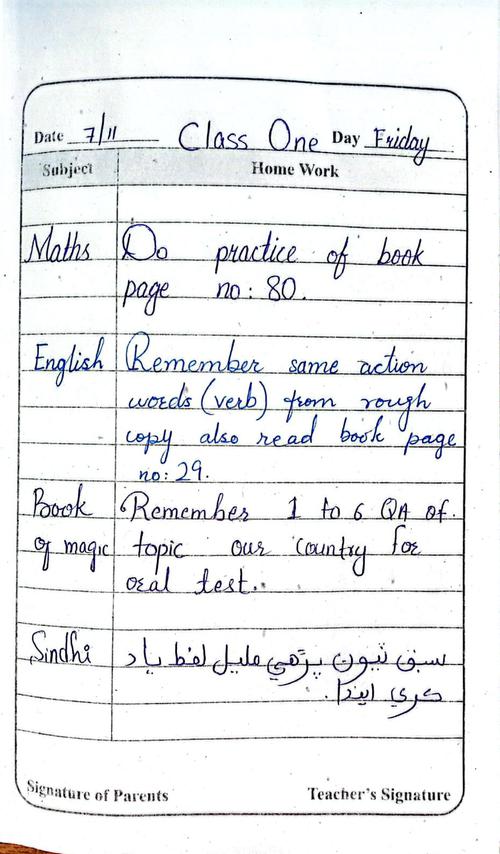 Date 7/11 Class One Day Friday
Subject Home Work
Maths Do practice of book
page no: 80.
English Remember same action
words (verb) from rough
copy also read book page
no: 29.
Book Remember 1 to 6 QA of.
of magic topic our country for
oral test.
Sindhi سبق نيون پڙهي مليل لفظ ياد
ڪري ايندا.
Signature of Parents Teacher's Signature